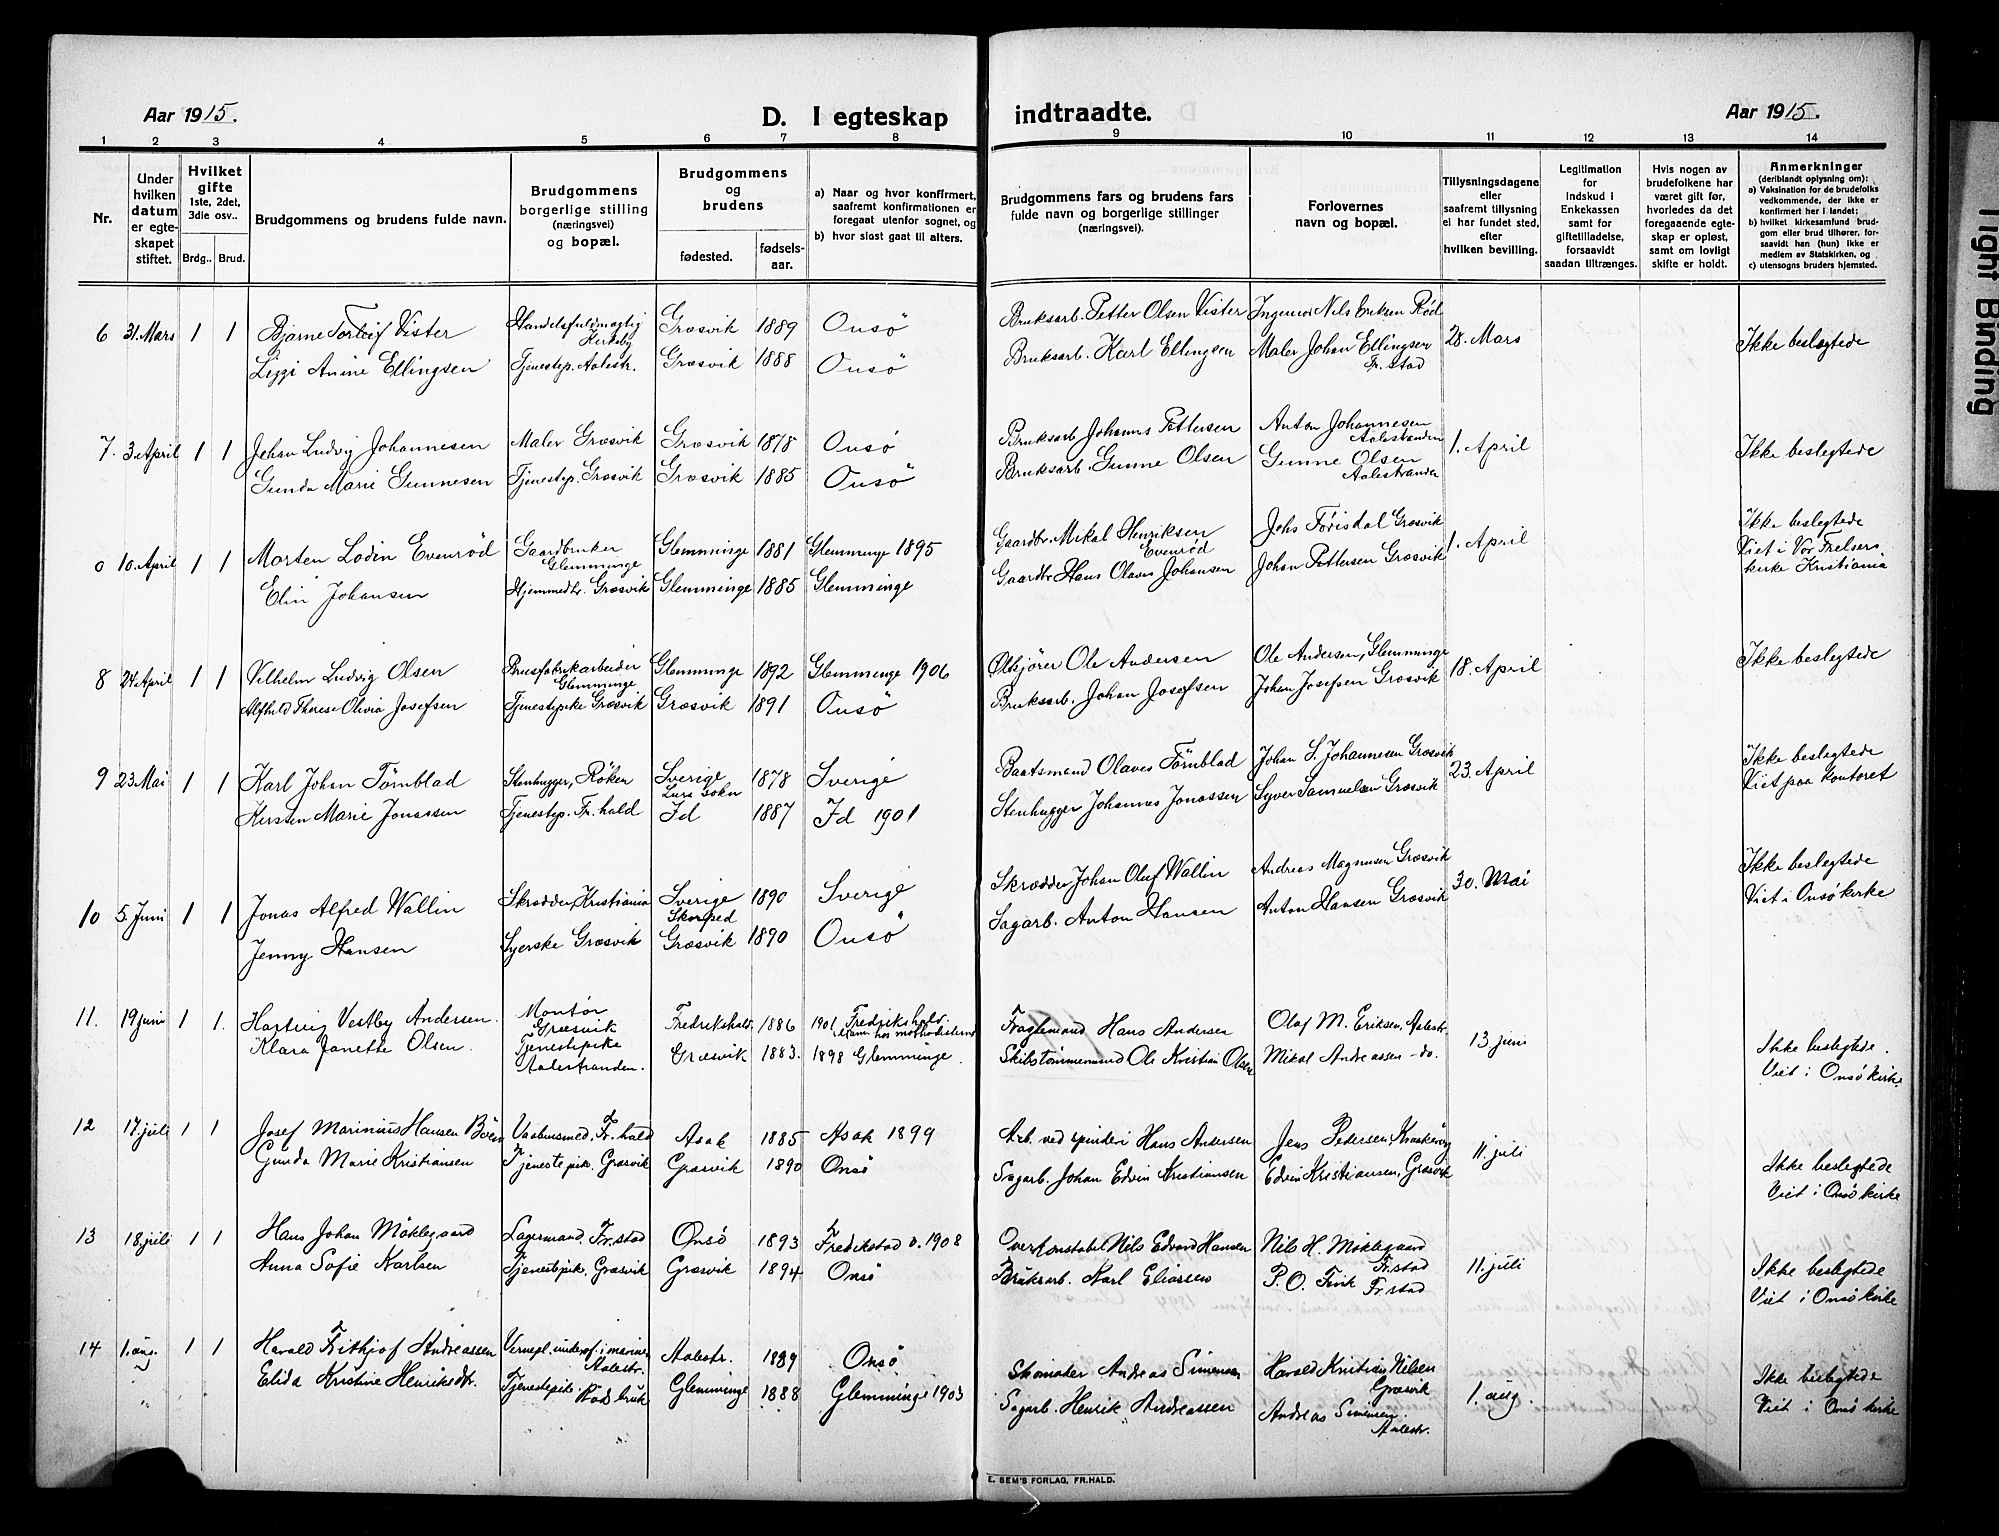 Aar 1915.
D. I egteskap indtraadte.
Aar 1915.
1 2 3 4 5 6 7 8 9 10 11 12 13 14
Nr.
Under hvilken datum er egteskapet stiftet.
Hvilket gifte 1ste, 2det, 3die osv..
Brdg.. Brud.
Brudgommens og brudens fulde navn.
Brudgommens borgerlige stilling (næringsvei) og bopæl.
Brudgommens og brudens
fødested. fødselsaar.
a) Naar og hvor konfirmert, saafremt konfirmationen er foregaat utenfor sognet, og
b) hvor sidst gaat til alters.
Brudgommens fars og brudens fars fulde navn og borgerlige stillinger (næringsvei).
Forlovernes navn og bopæl.
Tillysningsdagene eller saafremt tillysning ei har fundet sted, efter hvilken bevilling.
Legitimation for indskud i Enkekassen samt for giftetilladelse, forsaavidt saadan tiltrænges.
Hvis nogen av brudefolkene har været gift før, hvorledes da det foregaaende egteskap er opløst, samt om lovligt skifte er holdt.
Anmerkninger (deriblandt oplysning om):
a) Vaksination for de brudefolks vedkommende, der ikke er konfirmert her i landet;
b) hvilket kirkesamfund brudgom eller brud tilhører, forsaavidt han (hun) ikke er medlem av Statskirken, og
c) utensogns bruders hjemsted.
6 31. Mars 1 1 Bjarne Torleif Vister Handelsfuldmægtig Græsvik 1889 Onsö Bruksarb. Petter Olsen Vister Ingeniør Nils Eriksen Rød 28. Mars Ikke beslegtede
Lizzi Anine Ellingsen Tjenestep. Aalestr. Græsvik 1888 Onsö Bruksarb. Karl Ellingsen Maler Johan Ellingsen Fr. stad
7. 3. April 1 1 Johan Ludvig Johannesen Maler Græsvik Græsvik 1878 Onsö Bruksarb. Johannes Pettersen Anton Johannesen Aalestranden 1. April Ikke beslegtede
Gunda Marie Gunnesen Tjenestep. Græsvik Græsvik 1885 Onsö Bruksarb. Gunne Olsen Gunne Olsen Aalestranden
0 10. April 1 1 Morten Lodin Evenrød Gaardbruker Glemminge Glemminge 1881 Glemminge 1895 Gaardbr. Mikal Henriksen Evenrød Johs Græsvik 1. April Ikke beslegtede
Elin Johansen Hjemmedtr. Græsvik Glemminge 1885 Glemminge Gaardbr. Hans Olaves Johansen Johan Pettersen Græsvik Viet i Vor Frelsers kirke Kristiania
8 24. April 1 1 Vilhelm Ludvig Olsen Brusfabrikarbeider Glemminge Glemminge 1892 Glemminge 1906 Ølkjører Ole Andersen Ole Andersen, Glemminge 18. April Ikke beslegtede
Alfhild Therese Olivia Josefsen Tjenestepike Græsvik Græsvik 1891 Onsö Bruksarb. Johan Josefsen Johan Josefsen Græsvik
9 23. Mai 1 1 Karl Johan Törnblad Stenhugger, Røken Sverige Lurs sokn 1878 Sverige Baatsmand Olaves Törnblad Johan S. Johannesen Græsvik 23. April Ikke beslegtede
Kirsten Marie Jonassen Tjenestep. Fr. hald Id 1887 Id 1901 Stenhugger Johannes Jonassen Syver Samuelsen Græsvik Viet paa kontoret
10 5. Juni 1 1 Jonas Alfred Wallin Skrædder, Kristiania Sverige Skorped 1890 Sverige Skrædder Johan Oluf Wallin Andreas Magnusen Græsvik 30. Mai Ikke beslegtede
Jenny Hansen Syerske Græsvik Græsvik 1890 Onsö Sagarb. Anton Hansen Anton Hansen Græsvik Viet i Onsökirke
11. 19 juni 1 1. Hartvig Vestby Andersen. Montör Græsvik Fredrikshald. 1886 1901 Fredrikshald. Hans Andersen Olaf M. Eriksen, Aalestr. 13 juni Ikke beslegtede.
Klara Janette Olsen. Tjenestepike Aalestranden. Græsvik 1883. 1898 Glemminge. Skibstömmermand Ole Kristian Olsen Mikal Andreassen - do. Viet i Onsö kirke
12 17. juli 1 1 Josef Marinius Hansen Vaabensmed, Fr. hald Asak 1885 Asak 1899 Arb. ved spinderi Hans Andersen Jens Pedersen, 11. juli Ikke beslegtede
Gunda Marie Kristiansen Tjenestepik. Græsvik Græsvik 1890 Onsö Sagarb. Johan Edvin Kristiansen Edvin Kristiansen, Græsvik Viet i Onsö kirke
13 18. juli 1 1 Hans Johan Möklegaard Lagermand, Fr. stad Onsö 1893 Fredrikstad v. 1908 Overkonstabel Nils Edvard Hansen Nils H. Möklegaard Fr. stad 11. juli Ikke beslegtede
Anna Sofie Karlsen Tjenestepik. Græsvik Græsvik 1894 Onsö Bruksarb. Karl Eliassen P. O. Fr. stad Viet i Onsö kirke
14 1. aug. 1 1 Harald Fritjof Andreassen Vernepl. underof. i marinen Aalestr. Aalestr. 1889 Onsö Skomaker Andreas Simensen Harald Kristian Nilsen Græsvik 1. aug. Ikke beslegtede
" Elida Kristine Henriksdtr. Tjenestepik. Rödsbruk Glemminge 1888 Glemminge 1903 Sagarb. Henrik Andreassen Andreas Simensen Aalestr. Viet i Onsö kirke
E. SEM'S FORLAG, FR.HALD.
Tight Binding